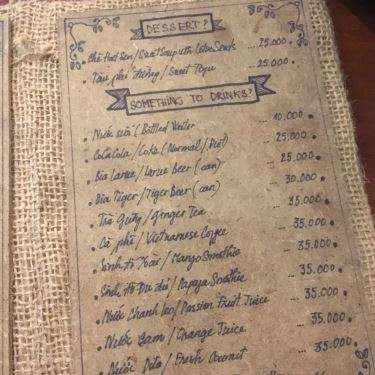 DESSERT?
Chè Hạt Sen / Sweet Soup with Lotus Seeds ... 25.000 .
Tàu phớ Đường / Sweet Tofu ... 25.000 .
SOMETHING TO DRINKS?
Nước suối ( Bottled Water ... 10.000 .
CocaCola / Coke (Normal / Diet) ... 25.000 .
Bia Larue / Larue Beer (can) ... 25.000 .
Bia Tiger / Tiger Beer (can) ... 30.000 .
Trà Gừng / Ginger Tea ... 35.000 .
Cà phê / Vietnamese Coffee ... 35.000 .
Sinh tố Xoài / Mango Smothie ... 35.000 .
Sinh tố Đu đủ / Papaya Smothie ... 35.000 .
Nước Chanh leo / Passion Fruit Juice ... 35.000 .
Nước Cam / Orange Juice ... 35.000 .
Nước Dừa / Fresh Coconut ... 35.000 .